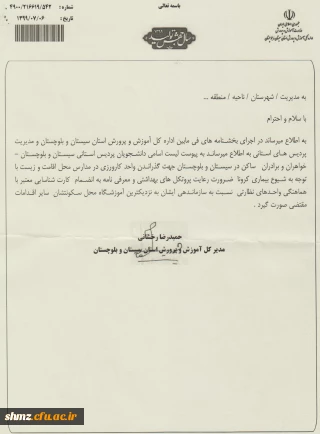 باسمه تعالی
شماره : ۴۹۰۰/۲۱۶۶۱۹/۵۴۲
تاریخ : ۱۳۹۹/۰۷/۰۶
جمهوری اسلامی ایران
وزارت آموزش و پرورش
به مدیریت / شهرستان / ناحیه / منطقه ...
با سلام و احترام
به اطلاع میرساند در اجرای بخشنامه های فی مابین اداره کل آموزش و پرورش استان سیستان و بلوچستان و مدیریت
پردیس های استانی به اطلاع میرساند به پیوست لیست اسامی دانشجویان پردیس استانی سیستان و بلوچستان –
خواهران و برادران ساکن در سیستان و بلوچستان جهت گذراندن واحد کارورزی در مدارس محل اقامت و زیست با
توجه به شیوع بیماری کرونا ضرورت رعایت پروتکل های بهداشتی و معرفی نامه به انضمام کارت شناسایی معتبر با
هماهنگی واحدهای نظارتی نسبت به سازماندهی ایشان به نزدیکترین آموزشگاه محل سکونتشان سایر اقدامات
مقتضی صورت گیرد .
حمیدرضا رخشانی
مدیر کل آموزش و پرورش استان سیستان و بلوچستان
shmz.cfu.ac.ir